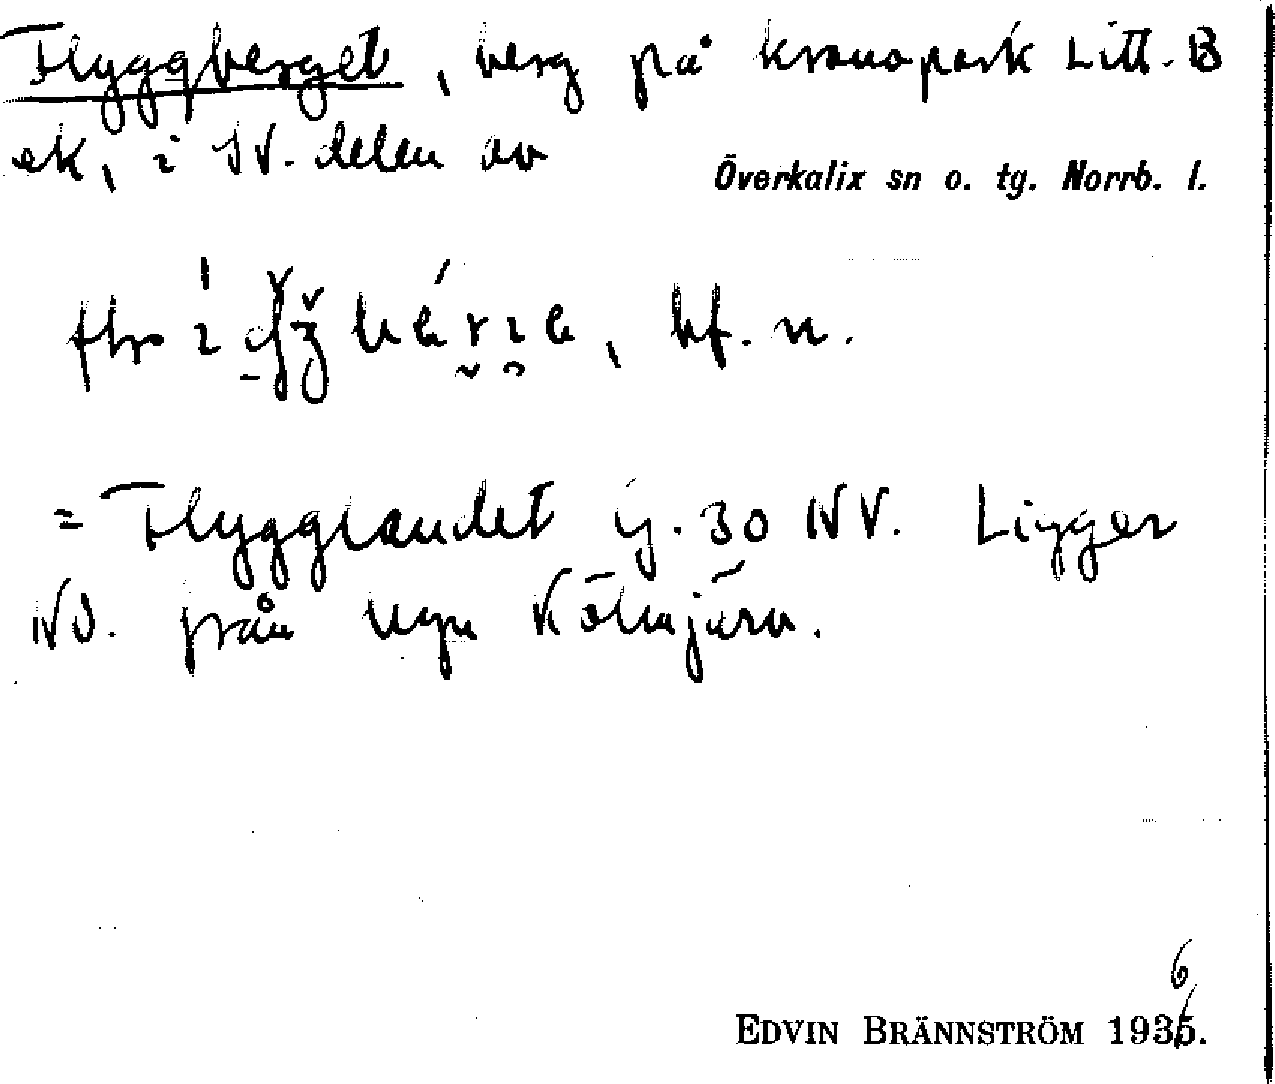 Flyggberget, berg på kronopark Litt. B
ek, i SV. delen av
Överkalix sn o. tg. Norrb. l.
bf. n.
= Flygglandet ij. 30 NV. Ligger
NO. från
EDVIN BRÄNNSTRÖM 1935.
6